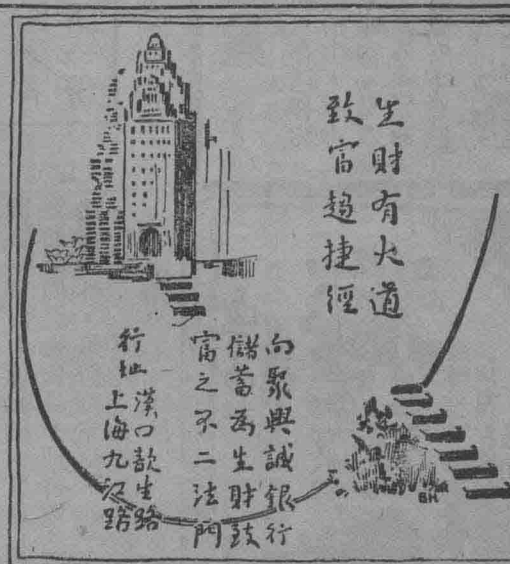 生財有大道
致富趨捷徑
向聚興誠銀行
儲蓄為生財致
富之不二法門
行址 漢口歆生路
上海九江路
BK